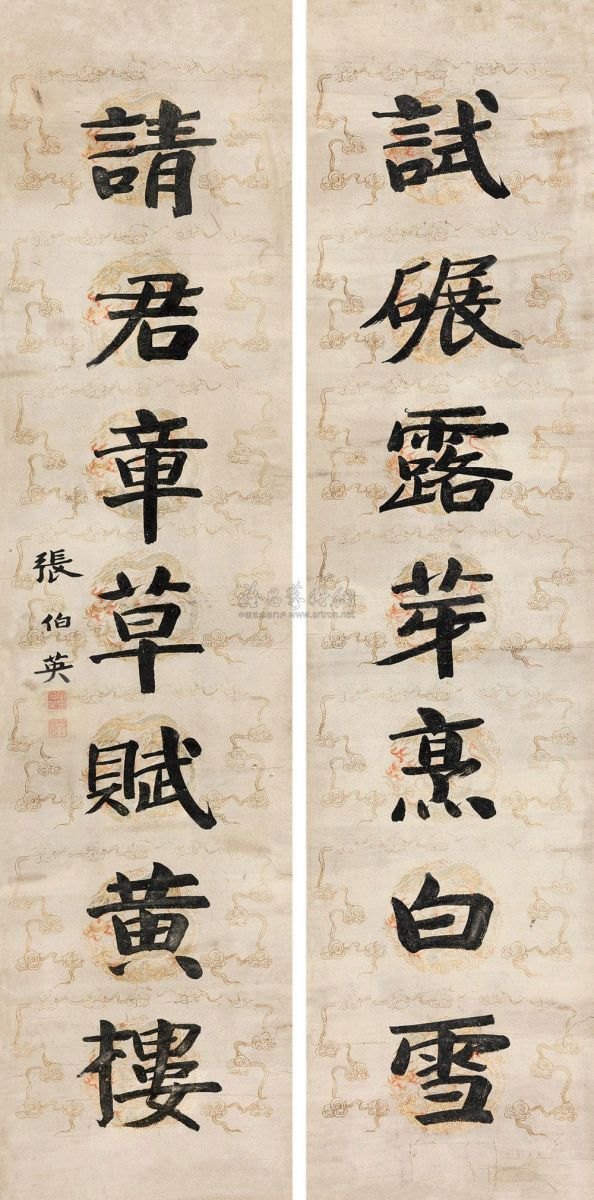 試碾露芽烹白雪
請君章草賦黄樓
張伯英
www.artron.net